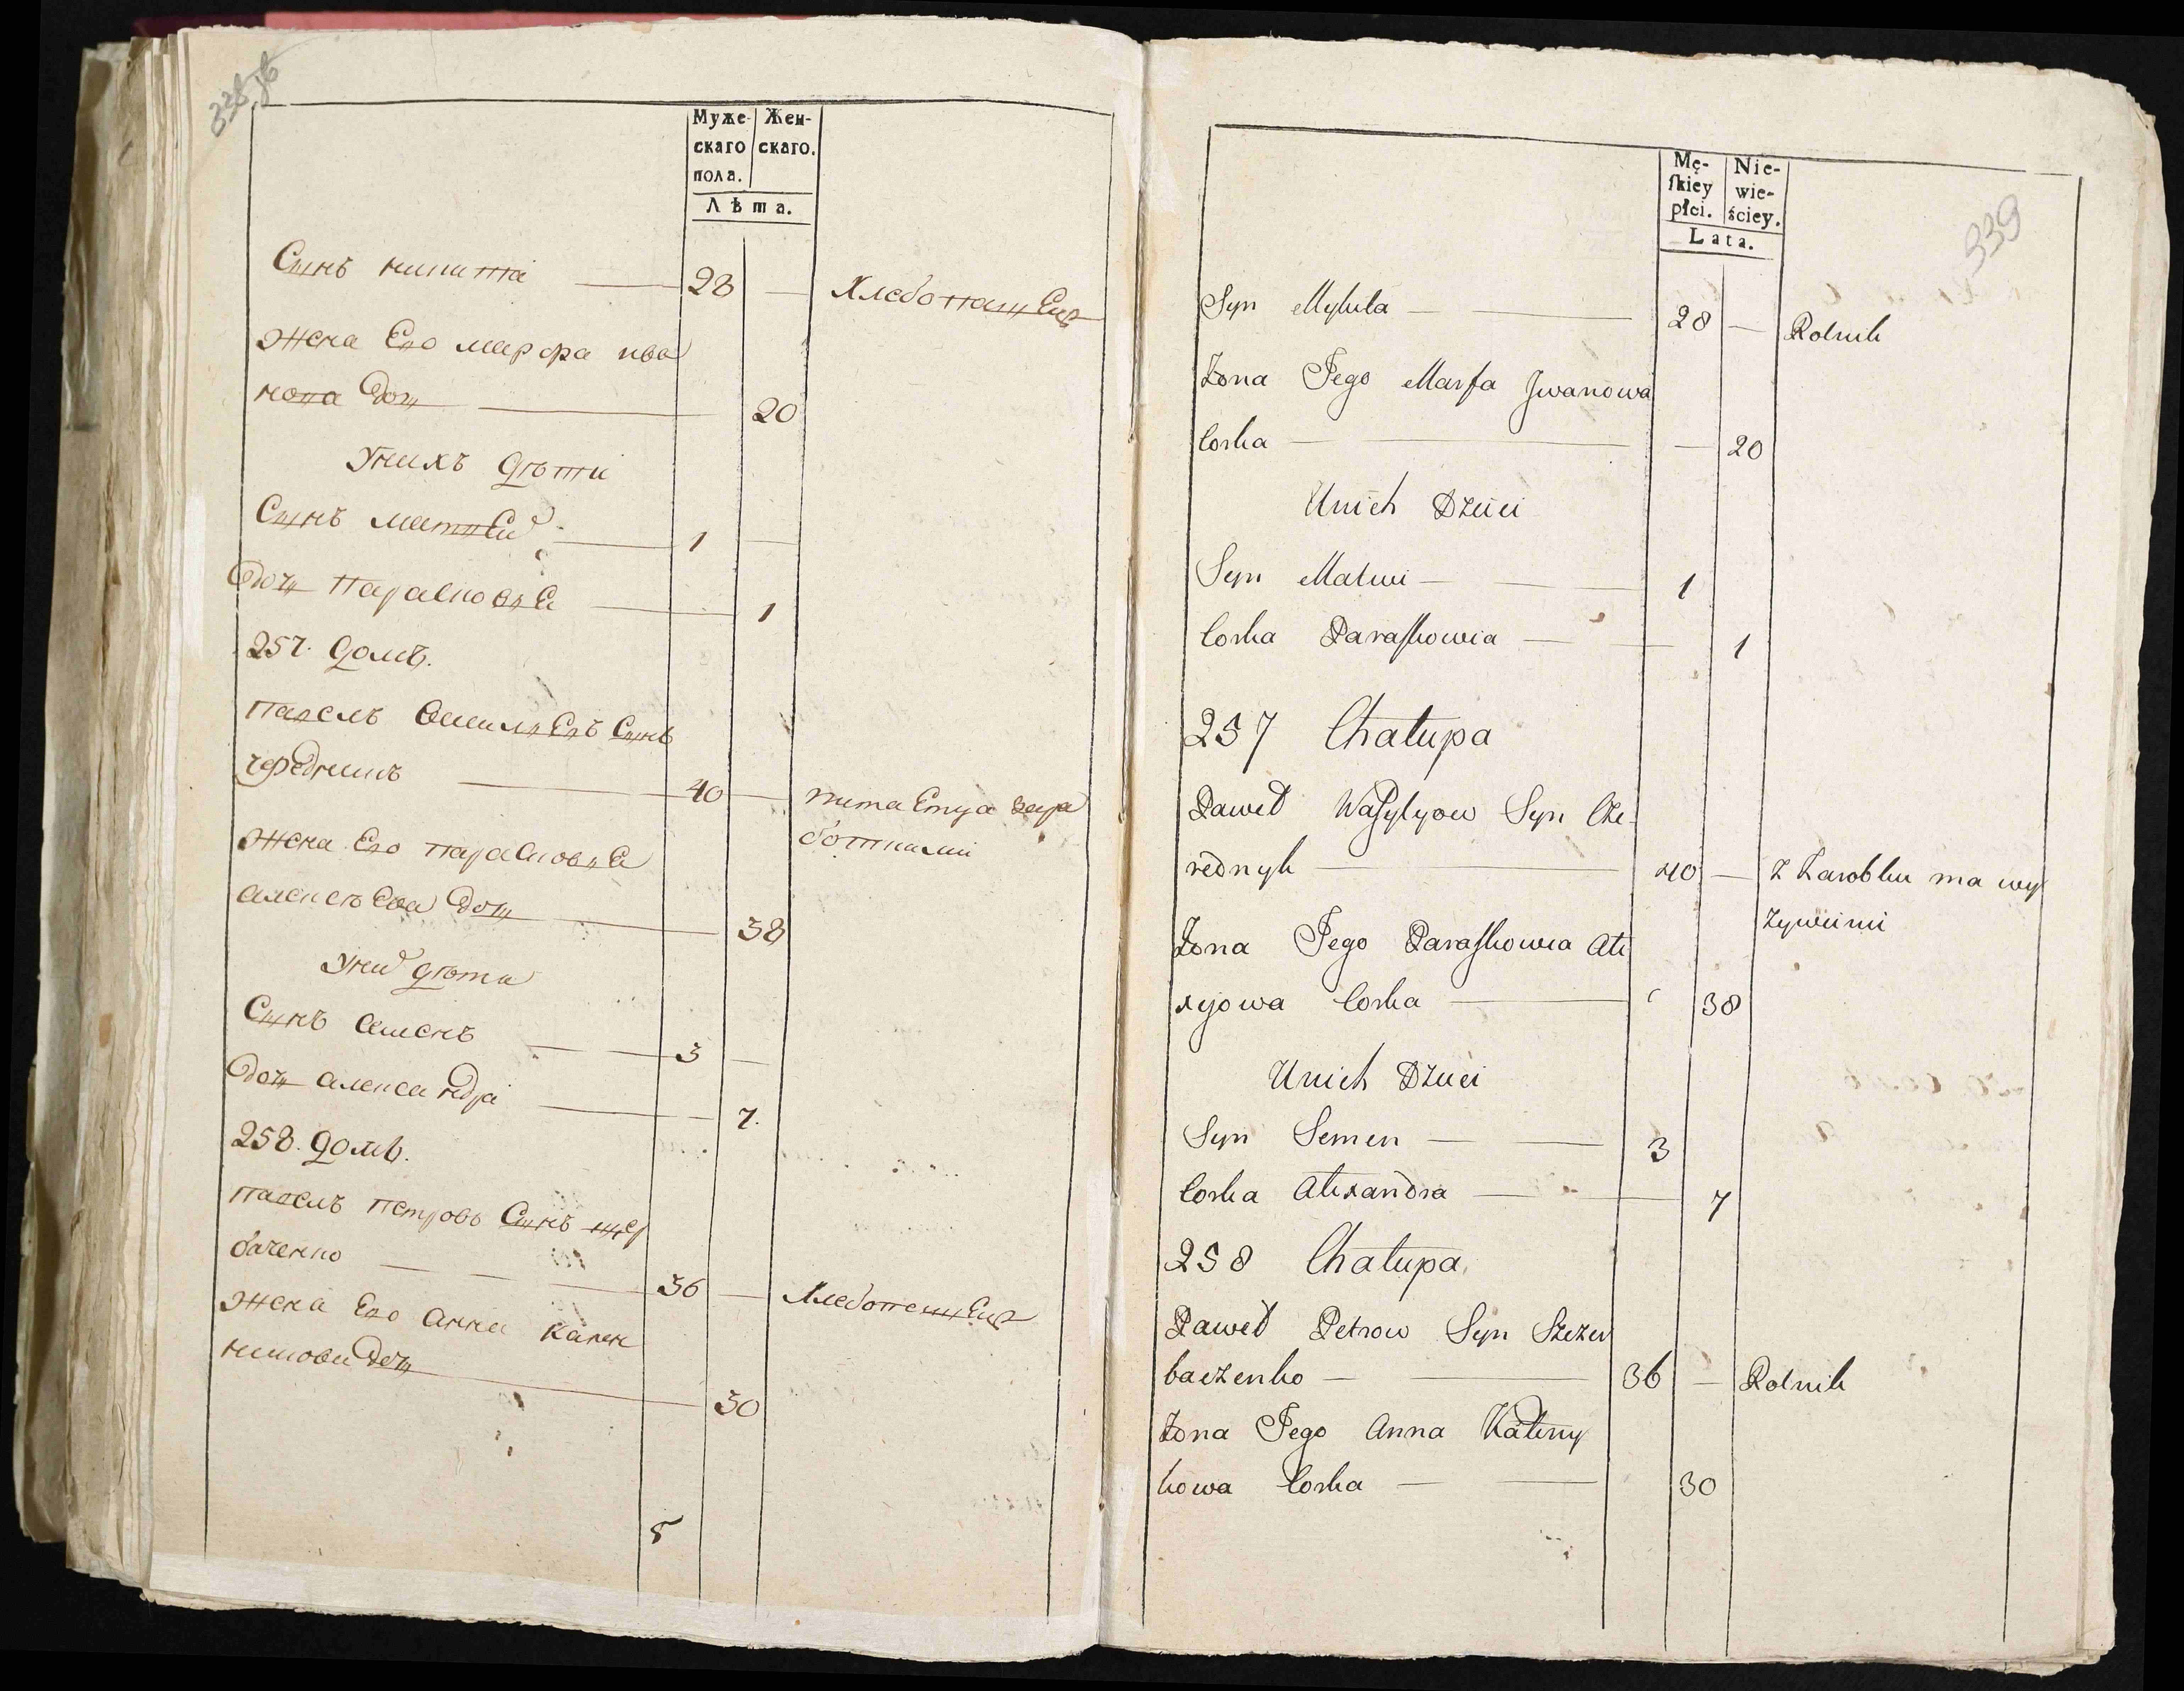 338 об
Муже- Жен-
скаго скаго.
пола.
Лѣта.
Сынъ никита 28 Хлебопашець
жена Его марфа ива
нова дочь 20
Унихъ дѣти
Сынъ матвей 1
дочь Парасковья 1
257. домъ.
павелъ васильевъ Сынъ
чередникъ 40 питаетца зара
ботками
жена Его парасковья
алексѣева дочь 38
Унихъ дѣти
Сынъ семенъ 3
дочь александра 7.
258. домъ.
павелъ петровъ Сынъ щер
баченко 36 Хлебопашець
жена Его анна калени
кова дочь 30
5
Mę- Nie-
ſkiey wie-
płci. ściey.
Lata.
339
Syn Mykita 28 Rolnik
Żona Jego Marfa Jwanowa
Corka 20
Unich Dzieci
Syn Matwi 1
Corka Paraſkowia 1
257 Chałupa
Paweł Waſylyow Syn Cze-
rednyk 40 Z Zarobku ma wy
żywieni
Żona Jego Paraſkowia Ale
xyowa Corka 38
Unich Dzieci
Syn Semen 3
Corka Alexandra 7
258 Chałupa
Paweł Petrow Syn Szczer
baczenko 36 Rolnik
Żona Jego Anna Kaleny
kowa Corka 30